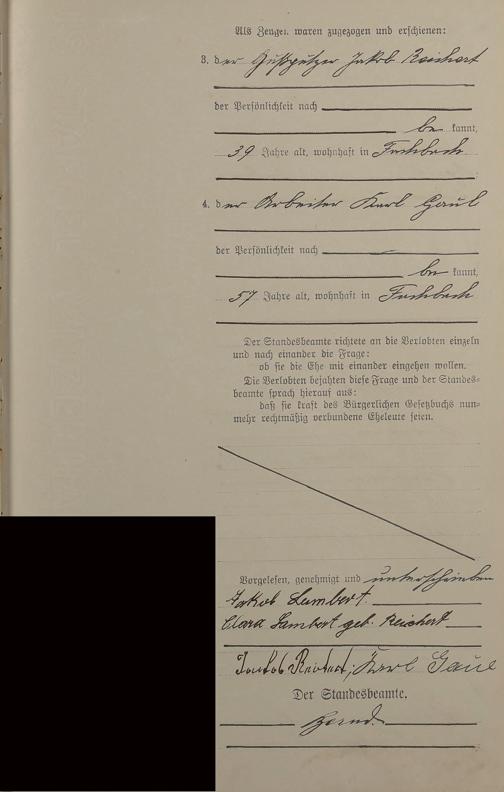 Als Zeugen waren zugezogen und erschienen:
3. der Gußputzer Jakob Reichert
der Persönlichkeit nach
be kannt,
39 Jahre alt, wohnhaft in Fachbach
4. der Arbeiter Karl Gaul
der Persönlichkeit nach
be kannt,
57 Jahre alt, wohnhaft in Fachbach
Der Standesbeamte richtete an die Verlobten einzeln
und nach einander die Frage:
ob sie die Ehe mit einander eingehen wollen.
Die Verlobten bejahten diese Frage und der Standes=
beamte sprach hierauf aus:
daß sie kraft des Bürgerlichen Gesetzbuchs nun=
mehr rechtmäßig verbundene Eheleute seien.
Vorgelesen, genehmigt und unterschrieben
Jakob Lambert
Clara Lambert geb. Reichert
Jakob Reichert, Karl Gaul
Der Standesbeamte.